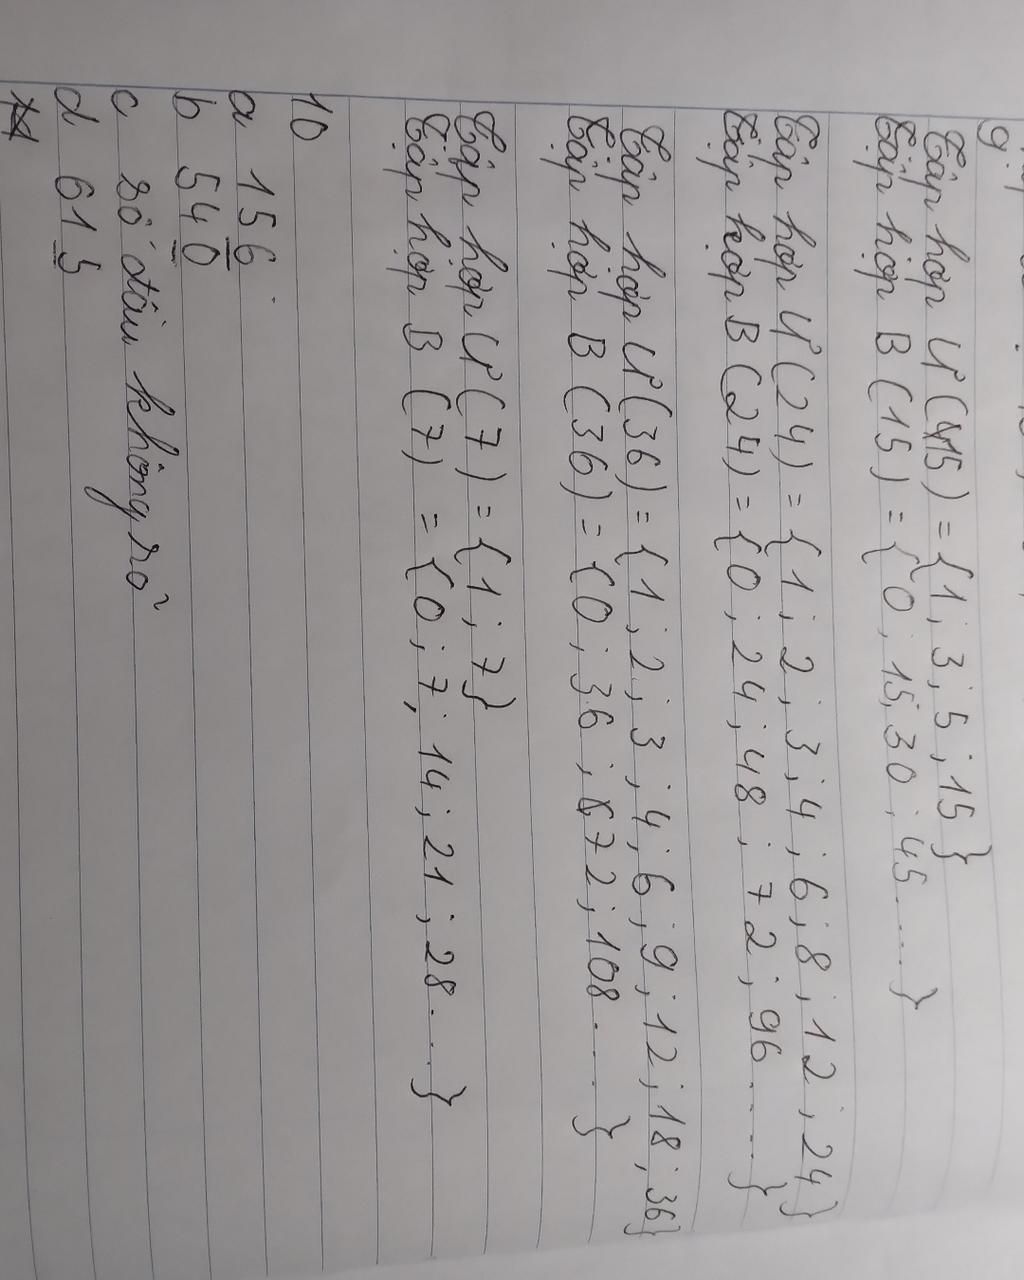 9.
Tập hợp Ư(15) = {1; 3; 5; 15}
Tập hợp B(15) = {0; 15; 30; 45.....}
Tập hợp Ư(24) = {1; 2; 3; 4; 6; 8; 12; 24}
Tập hợp B(24) = {0; 24; 48; 72; 96.....}
Tập hợp Ư(36) = {1; 2; 3; 4; 6; 9; 12; 18; 36}
Tập hợp B(36) = {0; 36; 72; 108.....}
Tập hợp Ư(7) = {1; 7}
Tập hợp B(7) = {0; 7; 14; 21; 28.....}
10
a 156
b 540
c số đầu không rõ
d 615